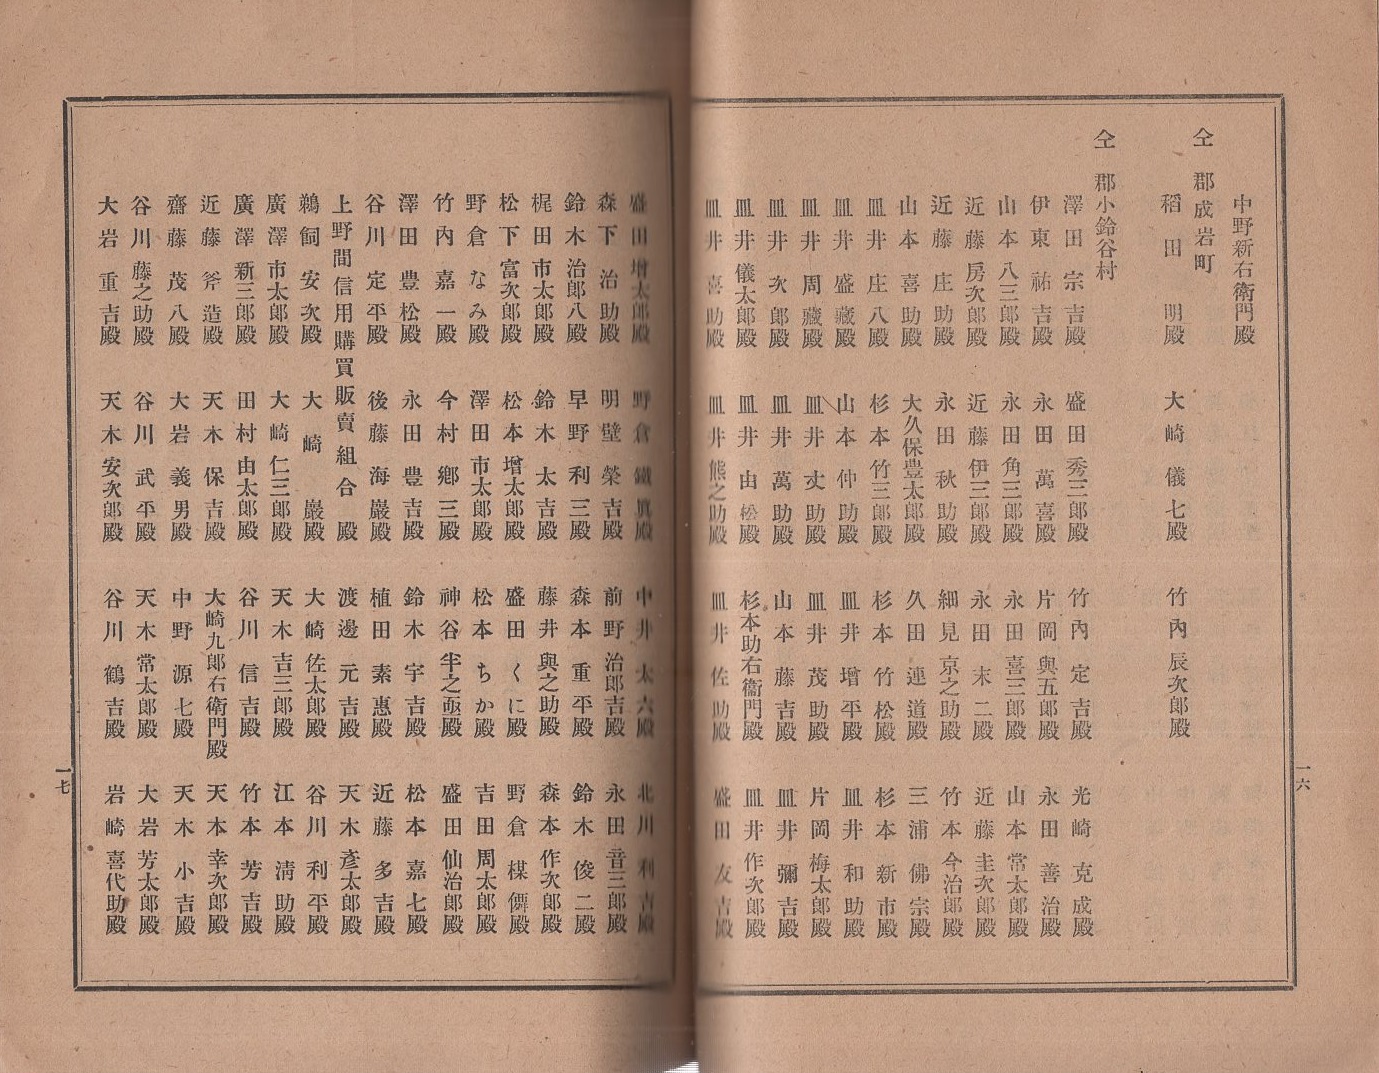 中野新右衛門殿
仝 郡成岩町
稻田明殿 大崎儀七殿 竹內辰次郎殿
仝 郡小鈴谷村
澤田宗吉殿 盛田秀三郎殿 竹內定吉殿 光崎克成殿
伊東祐吉殿 永田萬喜殿 片岡與五郎殿 永田善治殿
山本八三郎殿 永田角三郎殿 永田喜三郎殿 山本常太郎殿
近藤房次郎殿 近藤伊三郎殿 永田末二殿 近藤圭次郎殿
近藤庄助殿 永田秋助殿 細見京之助殿 竹本今治郎殿
山本喜助殿 大久保豊太郎殿 久田連道殿 三浦佛宗殿
皿井庄八殿 杉本竹三郎殿 杉本竹松殿 杉本新市殿
皿井盛藏殿 山本仲助殿 皿井增平殿 皿井和助殿
皿井周藏殿 皿井丈助殿 皿井茂助殿 片岡梅太郎殿
皿井次郎殿 皿井萬助殿 山本藤吉殿 皿井彌吉殿
皿井儀太郎殿 皿井由松殿 杉本助右衞門殿 皿井作次郎殿
皿井喜助殿 皿井熊之助殿 皿井佐助殿 盛田友吉殿
一六
盛田增太郎殿 野倉鐵眞殿 中井太六殿 北川利吉殿
森下治助殿 明壁榮吉殿 前野治郎吉殿 永田音三郎殿
鈴木治郎八殿 早野利三殿 森本重平殿 鈴木俊二殿
梶田市太郎殿 鈴木太吉殿 藤井與之助殿 森本作次郎殿
松下富次郎殿 松本增太郎殿 盛田くに殿 野倉殿
野倉なみ殿 澤田市太郎殿 松本ちか殿 吉田周太郎殿
竹內嘉一殿 今村鄕三殿 神谷半之亟殿 盛田仙治郎殿
澤田豊松殿 永田豊吉殿 鈴木宇吉殿 松本嘉七殿
谷川定平殿 後藤海巖殿 植田素惠殿 近藤多吉殿
上野間信用購買販賣組合殿 渡邊元吉殿 天木彥太郎殿
鵜飼安次殿 大崎巖殿 大崎佐太郎殿 谷川利平殿
廣澤市太郎殿 大崎仁三郎殿 天木吉三郎殿 江本淸助殿
廣澤新三郎殿 田村由太郎殿 谷川信吉殿 竹本芳吉殿
近藤斧造殿 天木保吉殿 大崎九郎右衛門殿 天本幸次郎殿
齋藤茂八殿 大岩義男殿 中野源七殿 天木小吉殿
谷川藤之助殿 谷川武平殿 天木常太郎殿 大岩芳太郎殿
大岩重吉殿 天木安次郎殿 谷川鶴吉殿 岩崎喜代助殿
一七